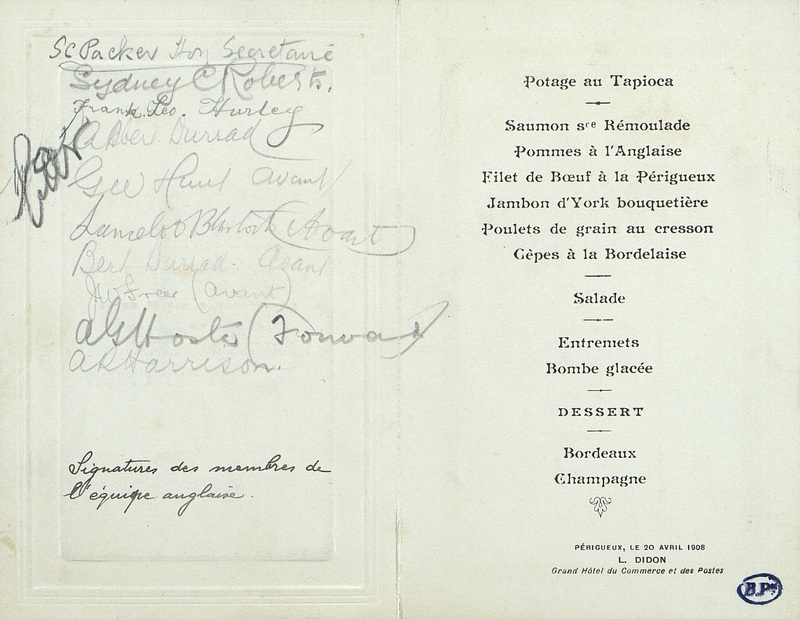 Sc Packer Hon Secretaire
Sydney C Roberts.
Frank. Leo. Hurley
Albert Durrad
Geo Hunt avant
Lancelot (Avant)
Bert Durrad. Avant
(avant)
(Forward
A R Harrison.
Signatures des membres de
l'équipe anglaise.
Potage au Tapioca
Saumon sre Rémoulade
Pommes à l'Anglaise
Filet de Bœuf à la Périgueux
Jambon d'York bouquetière
Poulets de grain au cresson
Cèpes à la Bordelaise
Salade
Entremets
Bombe glacée
DESSERT
Bordeaux
Champagne
PÉRIGUEUX, LE 20 AVRIL 1908
L. DIDON
Grand Hôtel du Commerce et des Postes
B.Px